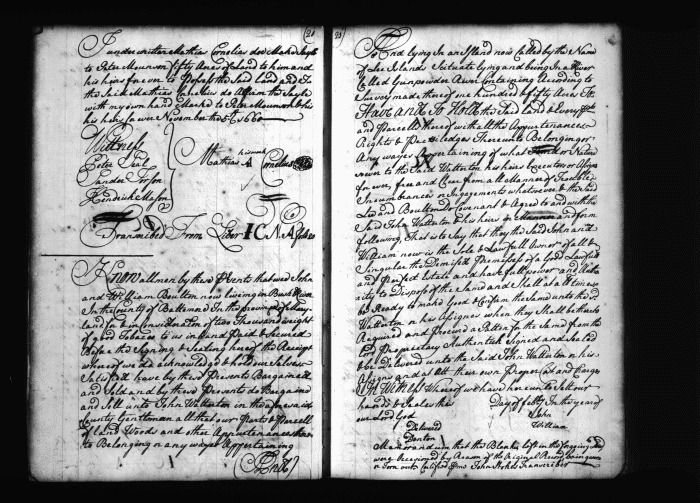 20
I underwritten Mathias Cornelius doe Make Sayle
to Peter Mounson fifty Acres of Land to him and
his heirs for ever to Posess the Sad Land and I
the Said Mathias Cornelius do Affirm the Sayle
with my own hand Marke to Peter Mounson & his
his heirs for ever November the 5th 1660
Wittness
Peter Teal
Sander
Hendrick Mason
his mark
Mathias A Cornelius
Transcribed From Liber I C N A folio 20
Know all men by these Presents that wee John
and William Boulton now liveing in Bush River
In the County of Baltemore In the province of Mary
land for & in consideration of two Thousand weight
of good Tobacco to us in hand Paid & Secured
Before the Signing & Sealing hereof the Receipt
whereof we do acknowledge & have Our Selves
Satisfied have by these Presents Bargained
and Sold and by these Presents do Bargaine
and Sell unto John Watterton in the aforesaid
County Gentleman all that our Part & Parcell
of land Woods and other Appurtenances there
to Belonging or any wayes Appertaining
21
And lying In an Island now Called by the Name
of Lee Islands Scituate lying and being In a River
Called Gunpowder River Containing According to
Survey made thereof one hundred & fifty Acres To
Have and To Hold the Said Land & Every Part
and Parcell thereof with all the Appurtenances
Rights & Priviledges Thereunto Belonging or
Any wayes Appertaining of what Nature
soever to the Said Watterton his heirs Executors or Assigns
for ever, free and Cleer from all Manner of Troubles
Incumbrances or Ingagements whatsoever & the said
John and Boulton Covenant & Agreed to and with the
Said John Watterton & his heirs in Manner and form
following, That is to Say that they the Said John and
William now is the Sole & Lawfull Owner of all &
Singular the Demised Premises of a Good Lawfull
and Perfect Estate and have full power and Autho
rity to Dispose of the Same and Shall at all times
be Ready to make Good & Confirm the Same unto the sd
Watterton or his Assignes when they Shall be thereto
Required and Procure a Pattent for the Same from the
Lord Proprietary Authentick Signed and Sealed
to be Delivered unto the Said John Watterton or his
Assigns and all their own Proper Cost and Charge
In Witness Whereof we have hereunto Sett our
hands & Seales the Day of feby In the year of
our Lord God
John
William
Delivered
Denton
Memorandum that the Blanks left in the foregoing deed
were Occasioned by Reason of the Original Record being worn
or Torn out Certified John Stokes Transcriber